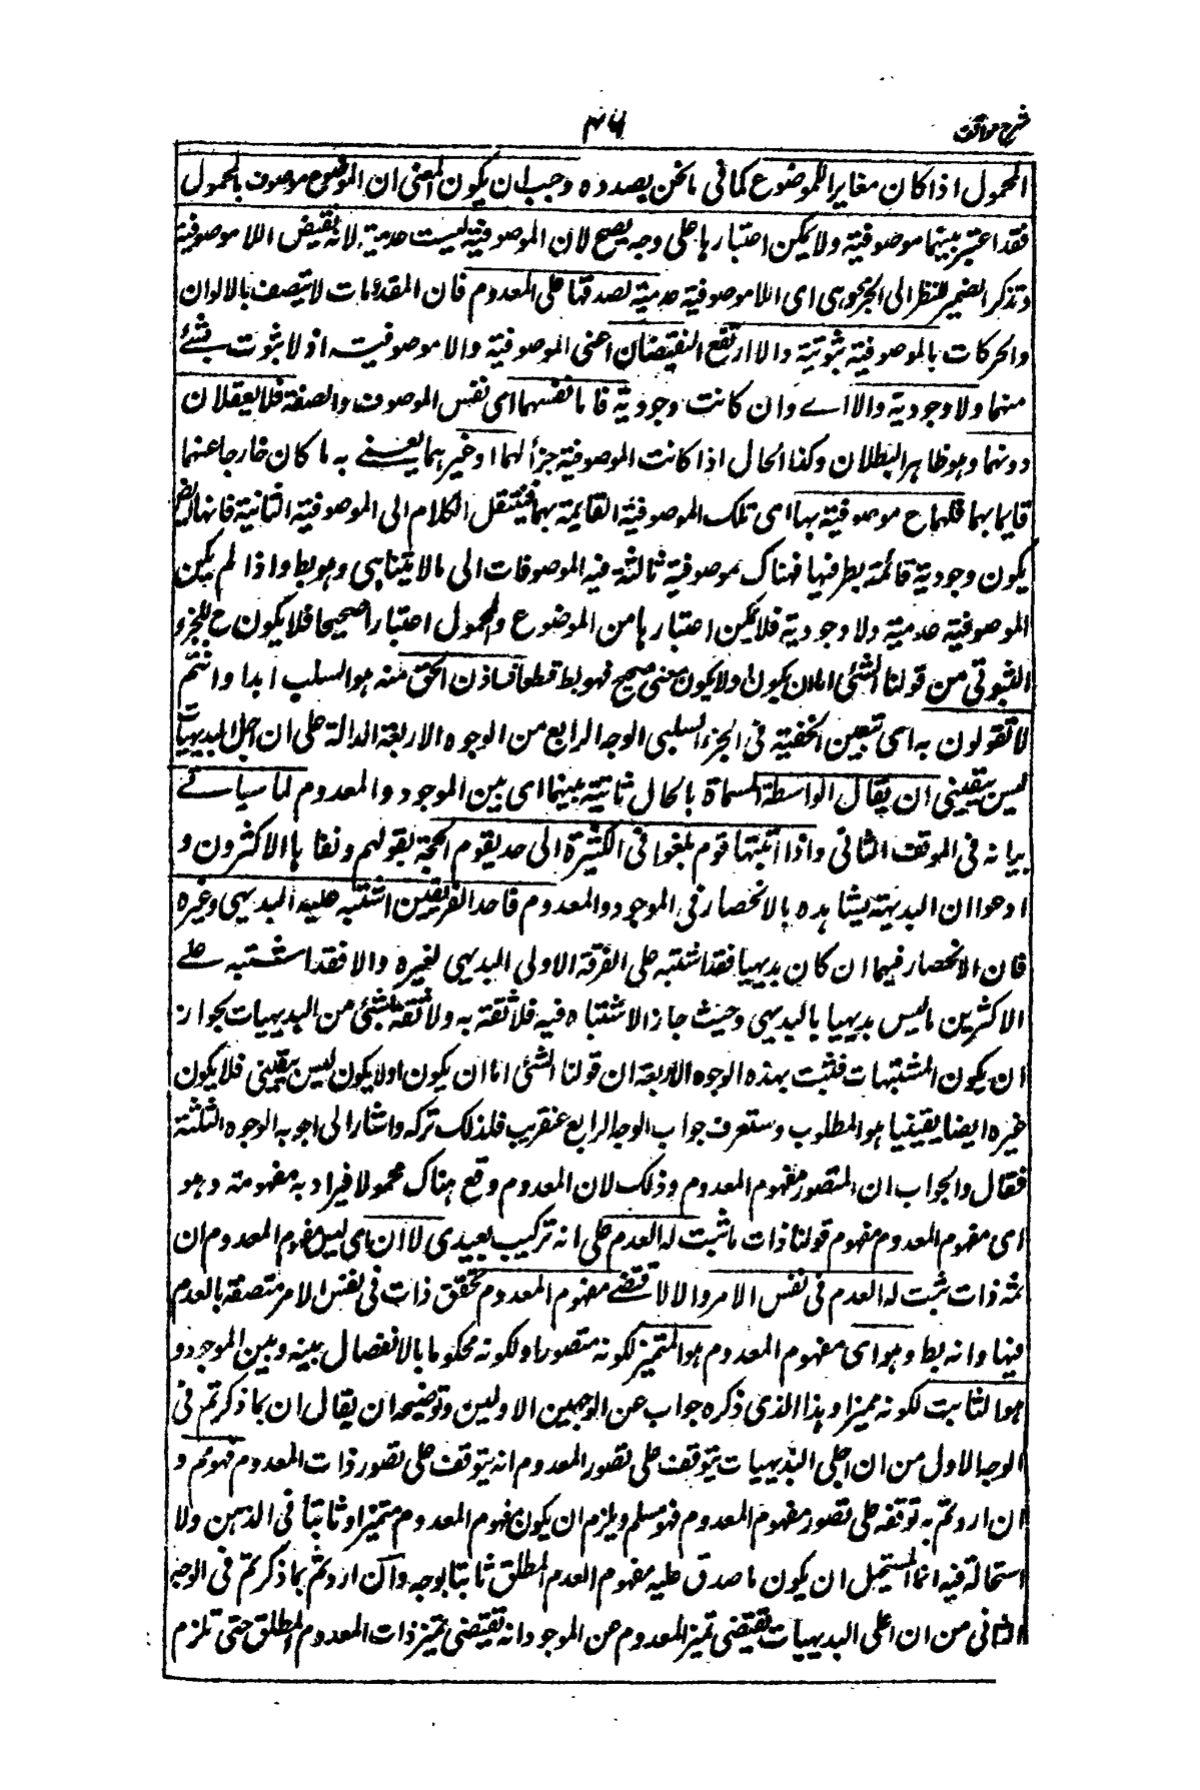 شرح مواقف
٤٦
المحمول اذا كان مغايرا للموضوع كما فى ما نحن بصدده وجب ان يكون المعنى ان الموضوع موصوف بالمحمول
فقد اعتبر بينهما موصوفية ولا يمكن اعتبارها على وجه يصح لان الموصوفية ليست عدمية لانه نقيض اللاموصوفية
وتذكر الضمير للنظر الى الخبر وهى اى اللاموصوفية عدمية لصدقها على المعدوم فان المقدمات لا تتصف بالالوان
والحركات بالموصوفية ثبوتية والا ارتفع النقيضان اعنى الموصوفية والاموصوفية اذ لا ثبوت بشئ
منهما ولا وجودية والا اے وان كانت وجودية فاما نفسهما اى نفس الموصوف والصفة فلا يعقلان
دونهما وهو ظاهر البطلان وكذا الحال اذا كانت الموصوفية جزأ لهما او غيرهما يعنے به ما كان خارجا عنهما
قايما بهما فلهما ح موصوفية بها اى تلك الموصوفية القايمة بهما فينتقل الكلام الى الموصوفية الثانية فانها ايض
يكون وجودية قائمة بطرفيها فهناك موصوفية ثالثة فيه الموصوفات الى ما لا يتناهى وهو بط واذا لم يكن
الموصوفية عدمية ولا وجودية فلا يمكن اعتبارها من الموضوع والمحمول اعتبارا صحيحا فلا يكون ح للجزو
الثبوتى من قولنا الشئ اما ان يكون او لا يكون معنى صحيح فهو بط قطعا فاذن الحق منه هو السلب ابدا وانتم
لا تقولون به اى تعين الحقية فى الجزء السلبى الوجه الرابع من الوجوه الاربعة الدالة على ان اجلى البديهيات
ليس بيقينى ان يقال الواسطة المسماة بالحال ثابتة بينهما اى بين الموجود والمعدوم لما سياتے
بيانه فى الموقف الثانى واذا اثبتها قوم بلغوا فى الكثرة الى حد يقوم الحجة بقولهم ونفاها الاكثرون و
ادعوا ان البديهة شاهده بالانحصار فى الموجود والمعدوم فاحد الفريقين اشتبه عليه البديهى وغيره
فان الانحصار فيهما ان كان بديهيا فقد اشتبه على الفرقة الاولى البديهى لغيره والا فقد اشتبه علے
الاكثرين ما ليس بديهيا بالبديهى وحيث جاز الاشتباه فيه فلا ثقة به ولا ثقة بشئ من البديهيات بجواز
ان يكون المشتبهات فثبت بهذه الوجوه الاربعة ان قولنا الشئ اما ان يكون اولا يكون ليس بيقينى فلا يكون
غيره ايضا يقينيا هو المطلوب وستعرف جواب الوجه الرابع عنقريب فلذلك تركه واشار الى اجوبه الوجوه الثلثة
فقال والجواب ان المتصور مفهوم المعدوم وذلك لان المعدوم وقع هناك محمولا فيراد به مفهومه وهو
اى مفهوم المعدوم مفهوم قولنا ذات ما ثبت له العدم على انه تركيب تقييدى لا ان اى ليس مفهوم المعدوم ان
ثمه ذات ثبت له العدم فى نفس الامر والا لاقتضے مفهوم المعدوم تحقق ذات فى نفس الامر متصفة بالعدم
فيها وانه بط وهو اى مفهوم المعدوم هو المتميز لكونه متصورا ولكونه محكوما بالانفصال بينه وبين الموجود و
هو الثابت لكونه مميزا وهذا الذى ذكره جواب عن الوجهين الاولين وتوضيحه ان يقال ان بما ذكرتم فى
الوجه الاول من ان اجلى البديهيات يتوقف على تصور المعدوم انه يتوقف على تصور ذات المعدوم فهو مم و
ان اردتم به توقفه على تصور مفهوم المعدوم فهو مسلم ويلزم ان يكون مفهوم المعدوم متميزا وثابتا فى الذهن ولا
استحالة فيه انما المستحيل ان يكون ما صدق عليه مفهوم العدم المطلق ثابتا بوجه وان اردتم بما ذكرتم فى الوجه
الثانى من ان اعلى البديهيات تقتضى تميز المعدوم عن الموجود انه تقتضى تميز ذات المعدوم المطلق حتى تلزم